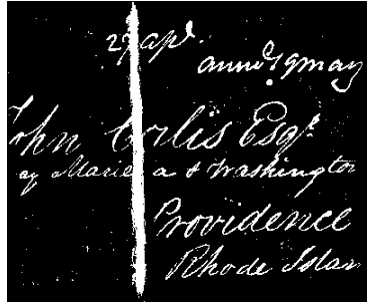 27 apl.
ansd. 9 may
John Corlis Esqr.
Marie a & Washington
Providence
Rhode Islan